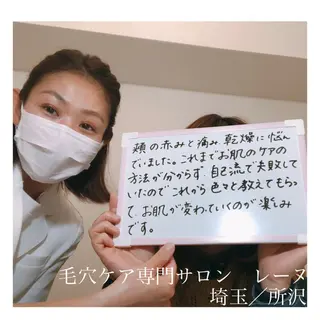 頬の赤みと痛み、乾燥に悩ん
でいました。これまでお肌のケアの
方法が分からず、自己流で失敗して
いたのでこれから色々と教えてもらっ
て、お肌が変わっていくのが楽しみ
です。
毛穴ケア専門サロン　レーヌ
埼玉／所沢